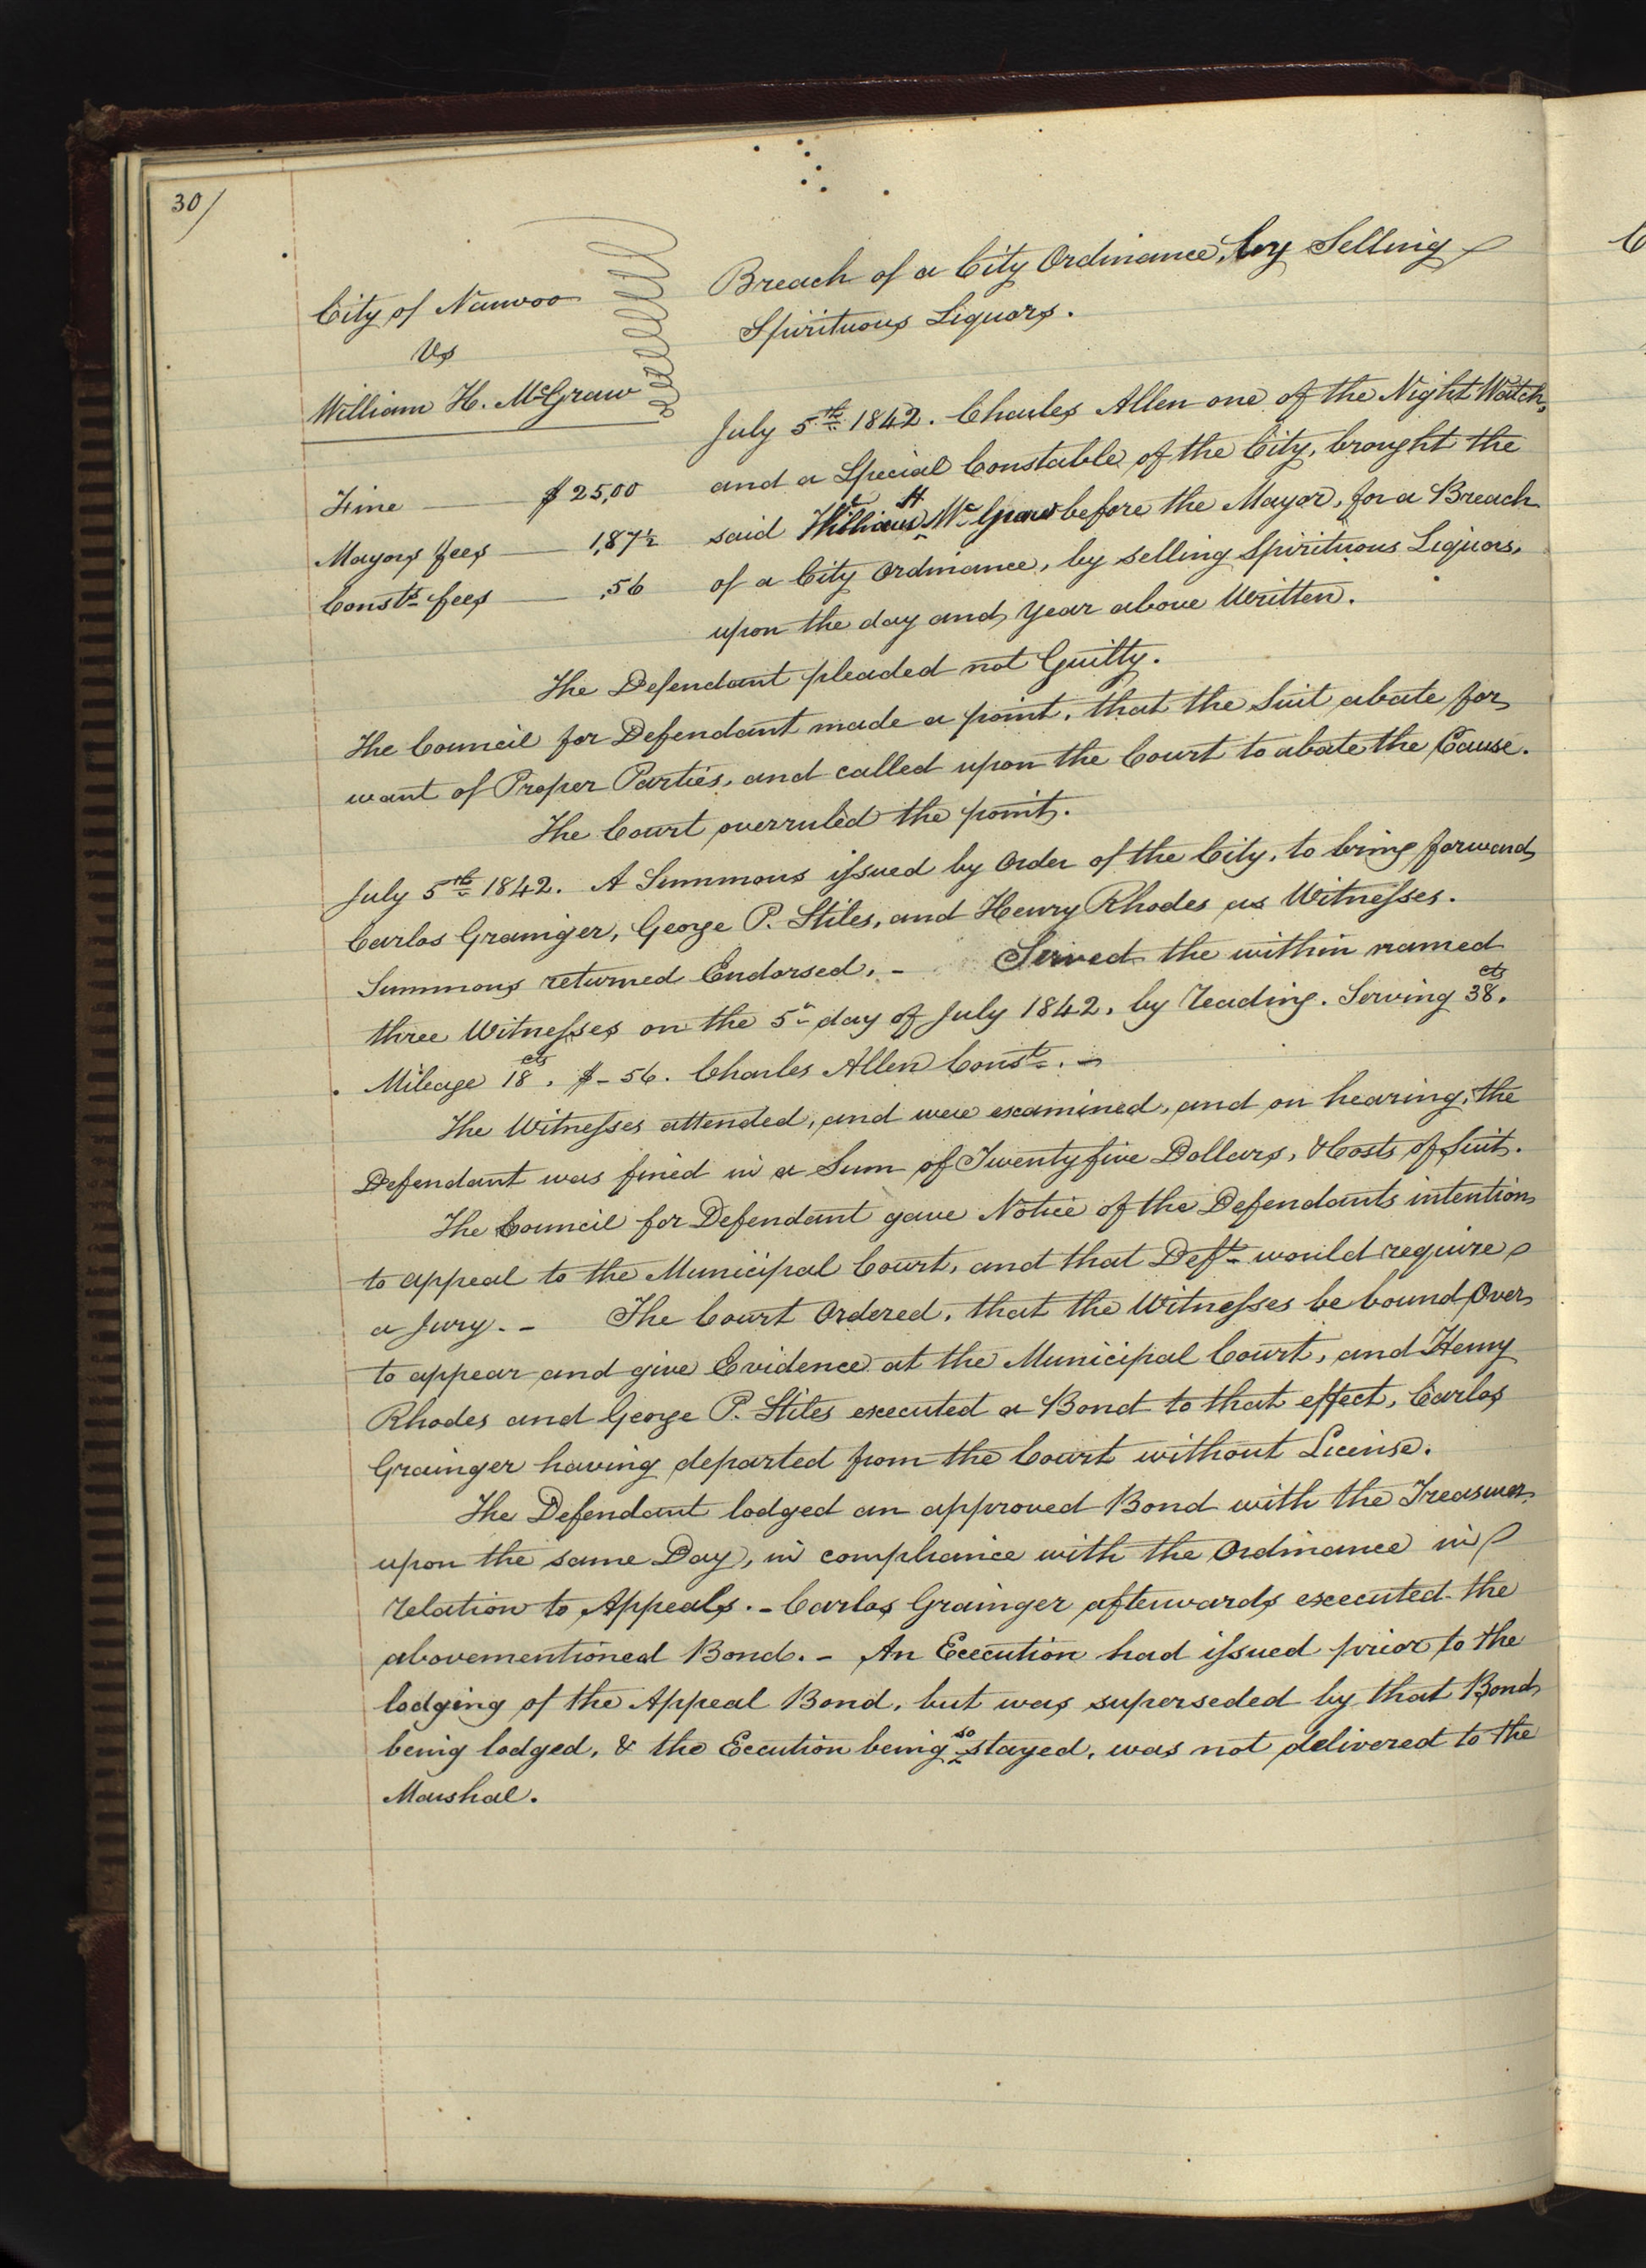 30/
City of Nauvoo
Vs
William H. McGraw
Breach of a City Ordinance, by Selling
Spirituous Liquors.
Fine — $25,00
Mayors fees — 1,87½
Consts. fees — ,56
July 5th 1842. Charles Allen one of the Night Watch,
and a Special Constable of the City, brought the
said William H McGraw before the Mayor, for a Breach
of a City Ordinance, by selling Spirituous Liquors,
upon the day and year above Written.
The Defendant pleaded not Guilty.
The Council for Defendant made a point, that the Suit abate for
want of Proper Parties, and called upon the Court to abate the Cause.
The Court overruled the point.
July 5th 1842. A Summons issued by Order of the City, to bring forward
Carlos Grainger, George P. Stiles, and Henry Rhodes as Witnesses.
Summons returned Endorsed. – Served the within named
three Witnesses on the 5th day of July 1842, by reading. Serving 38 cts.
Mileage 18 cts. $– 56. Charles Allen Const. –
The Witnesses attended, and were examined, and on hearing, the
Defendant was fined in a Sum of Twenty five Dollars, & Costs of Suit.
The Council for Defendant gave Notice of the Defendants intention
to appeal to the Municipal Court, and that Deft. would require
a Jury. – The Court Ordered, that the Witnesses be bound Over
to appear and give Evidence at the Municipal Court, and Henry
Rhodes and George P. Stiles executed a Bond to that effect, Carlos
Grainger having departed from the Court without License.
The Defendant lodged an approved Bond with the Treasurer
upon the same Day, in compliance with the Ordinance in
relation to Appeals. – Carlos Grainger afterwards executed the
abovementioned Bond. – An Execution had issued prior to the
lodging of the Appeal Bond, but was superseded by that Bond
being lodged, & the Eecution being so stayed, was not delivered to the
Marshal.